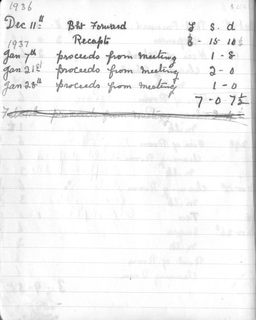 1936
Dec 11th Bht Forward £ s. d
Recepts 6 - 15 - 10½
1937
Jan 7th proceeds from meeting 1 - 8
Jan 21st proceeds from meeting 2 - 0
Jan 28th proceeds from meeting 1 - 0
7 - 0 7½